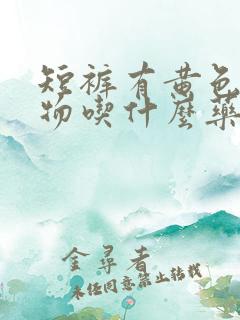 短裤有黄色
物喫什麼藥
金尋者
未经同意禁止转载